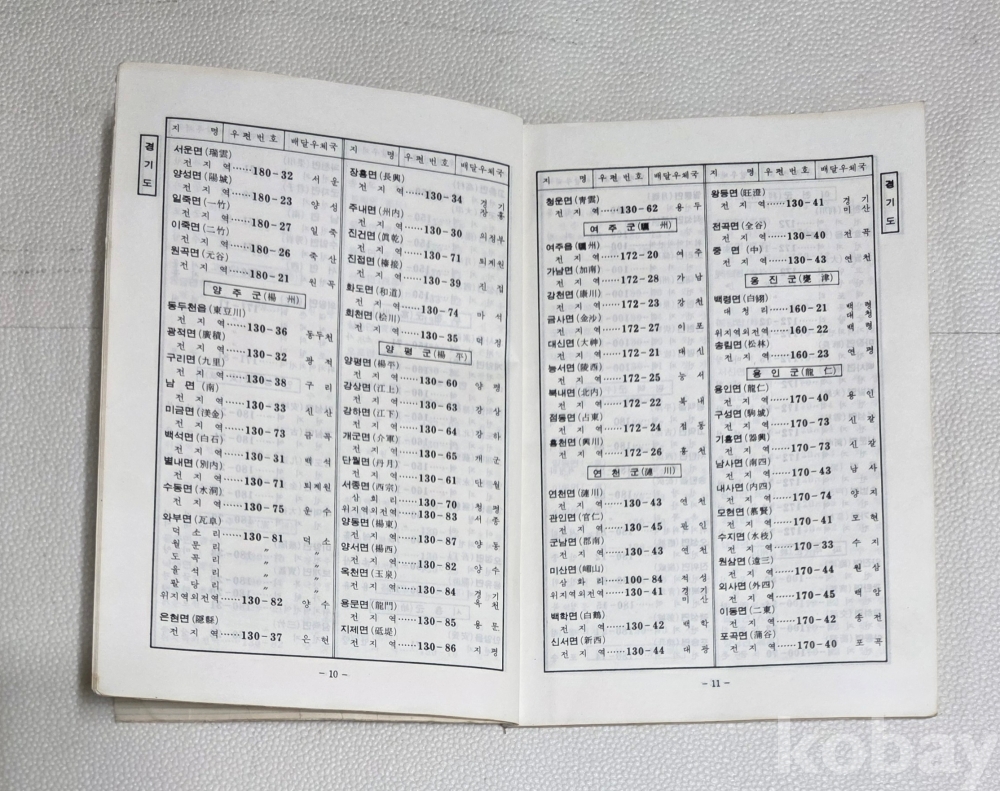 경기도
지 명 우편번호 배달우체국
서운면(瑞雲)
전지역……180-32 서운
양성면(陽城)
전지역……180-23 양성
일죽면(一竹)
전지역……180-27 일죽
이죽면(二竹)
전지역……180-26 죽산
원곡면(元谷)
전지역……180-21 원곡
양주군(楊州)
동두천읍(東豆川)
전지역……130-36 동두천
광적면(廣積)
전지역……130-32 광적
구리면(九里)
전지역……130-38 구리
남면(南)
전지역……130-33 신산
미금면(渼金)
전지역……130-73 금곡
백석면(白石)
전지역……130-31 백석
별내면(別內)
전지역……130-71 퇴계원
수동면(水洞)
전지역……130-75 운수
와부면(瓦阜)
덕소리……130-81 덕소
월문리 〃 〃
도곡리 〃 〃
율석리 〃 〃
팔당리 〃 〃
위지역외전역……130-82 양수
은현면(隱縣)
전지역……130-37 은현
지 명 우편번호 배달우체국
장흥면(長興)
전지역……130-34 경기장흥
주내면(州內)
전지역……130-30 의정부
진건면(眞乾)
전지역……130-71 퇴계원
진접면(榛接)
전지역……130-39 진접
화도면(和道)
전지역……130-74 마석
회천면(檜川)
전지역……130-35 덕정
양평군(楊平)
양평면(楊平)
전지역……130-60 양평
강상면(江上)
전지역……130-63 강상
강하면(江下)
전지역……130-64 강하
개군면(介軍)
전지역……130-65 개군
단월면(丹月)
전지역……130-61 단월
서종면(西宗)
삼회리……130-70 청평
위지역외전역……130-83 서종
양동면(楊東)
전지역……130-87 양동
양서면(楊西)
전지역……130-82 양수
옥천면(玉泉)
전지역……130-84 경기옥천
용문면(龍門)
전지역……130-85 용문
지제면(砥堤)
전지역……130-86 지평
- 10 -
지 명 우편번호 배달우체국
청운면(靑雲)
전지역……130-62 용두
여주군(驪州)
여주읍(驪州)
전지역……172-20 여주
가남면(加南)
전지역……172-28 가남
강천면(康川)
전지역……172-23 강천
금사면(金沙)
전지역……172-27 이포
대신면(大神)
전지역……172-21 대신
능서면(陵西)
전지역……172-25 능서
북내면(北內)
전지역……172-22 북내
점동면(占東)
전지역……172-24 점동
흥천면(興川)
전지역……172-26 흥천
연천군(漣川)
연천면(漣川)
전지역……130-43 연천
관인면(官仁)
전지역……130-45 관인
군남면(郡南)
전지역……130-43 연천
미산면(嵋山)
삼화리……100-84 적성
위지역외전역……130-41 경기미산
백학면(白鶴)
전지역……130-42 백학
신서면(新西)
전지역……130-44 대광
지 명 우편번호 배달우체국
왕등면(旺澄)
전지역……130-41 경기미산
전곡면(全谷)
전지역……130-40 전곡
중면(中)
전지역……130-43 연천
옹진군(甕津)
백령면(白翎)
대청리……160-21 백령대청
위지역외전역……160-22 백령
송림면(松林)
전지역……160-23 연평
용인군(龍仁)
용인면(龍仁)
전지역……170-40 용인
구성면(駒城)
전지역……170-73 신갈
기흥면(器興)
전지역……170-73 신갈
남사면(南四)
전지역……170-43 남사
내사면(內四)
전지역……170-74 양지
모현면(慕賢)
전지역……170-41 모현
수지면(水枝)
전지역……170-33 수지
원삼면(遠三)
전지역……170-44 원삼
외사면(外四)
전지역……170-45 백암
이동면(二東)
전지역……170-42 송전
포곡면(蒲谷)
전지역……170-40 포곡
경기도
- 11 -
kobay